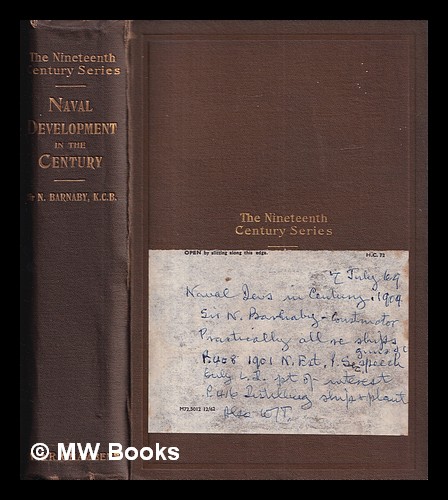 The Nineteenth
Century Series
NAVAL
DEVELOPMENT
IN THE
CENTURY
N. BARNABY, K.C.B.
The Nineteenth
Century Series
OPEN by slitting along this edge.
H.C. 72
7 July 69
Naval Devs in Century. 1904
Sir N. Barnaby - Constructor
Practically all re ships
guns &c
P.408 1901 N. Est, speech
Only pt of interest
P.416 ship & plant
Also W/T
M72,5012 12/62
© MW Books